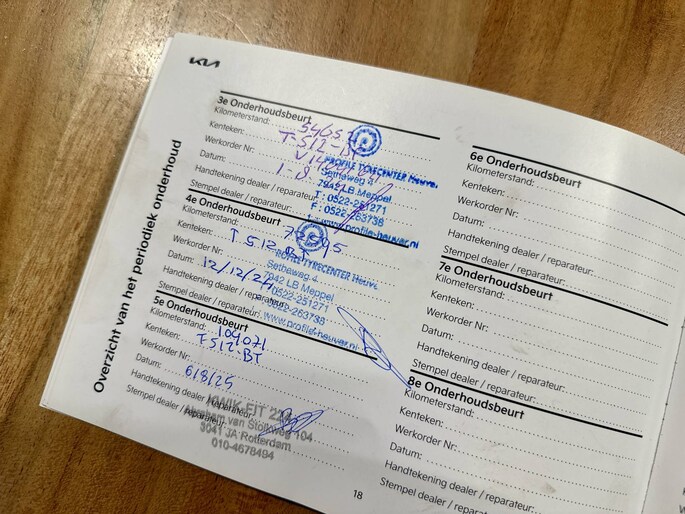 KIA
Overzicht van het periodiek onderhoud
3e Onderhoudsbeurt
Kilometerstand:
Kenteken: T-512-BT
Werkorder Nr:
Datum:
Handtekening dealer / reparateur:
Stempel dealer / reparateur:
PROFILE TYRECENTER Heuver
Setheweg 4
7942 LB Meppel
T: 0522-251271
F: 0522-263738
www.profile-heuver.nl
4e Onderhoudsbeurt
Kilometerstand:
Kenteken: T 512-BT
Werkorder Nr:
Datum: 12/12/24
Handtekening dealer / reparateur:
Stempel dealer / reparateur:
PROFILE TYRECENTER Heuver
Setheweg 4
7942 LB Meppel
0522-251271
0522-263738
www.profile-heuver.nl
5e Onderhoudsbeurt
Kilometerstand: 104071
Kenteken: T512-BT
Werkorder Nr:
Datum: 6/8/25
Handtekening dealer / reparateur:
Stempel dealer / reparateur:
KWIK FIT
van Stolkweg 104
3041 JA Rotterdam
010-4678494
6e Onderhoudsbeurt
Kilometerstand:
Kenteken:
Werkorder Nr:
Datum:
Handtekening dealer / reparateur:
Stempel dealer / reparateur:
7e Onderhoudsbeurt
Kilometerstand:
Kenteken:
Werkorder Nr:
Datum:
Handtekening dealer / reparateur:
Stempel dealer / reparateur:
8e Onderhoudsbeurt
Kilometerstand:
Kenteken:
Werkorder Nr:
Datum:
Handtekening dealer / reparateur:
Stempel dealer / reparateur:
18